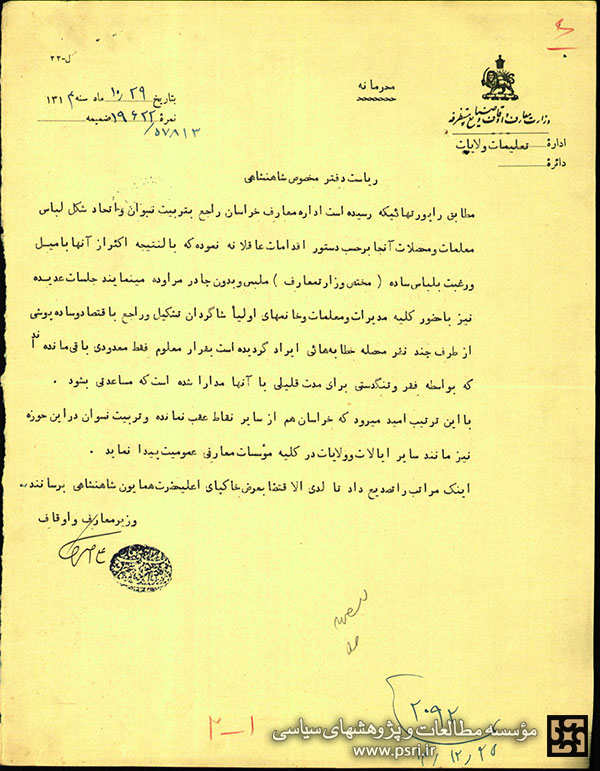 ل-۲۲
محرمانه
وزارت معارف و اوقاف و صنایع مستظرفه
اداره تعلیمات ولایات
دائره
بتاریخ ۱۰/۲۹ ماه سنه ۱۳۱۴
نمره ۱۹۶۲۲ ضمیمه
/۵۷۸۱۳
ریاست دفتر مخصوص شاهنشاهی
مطابق راپورتهائیکه رسیده است اداره معارف خراسان راجع بتربیت نسوان و اتحاد شکل لباس
معلمات و محصلات آنجا برحسب دستور اقدامات عاقلانه نموده که بالنتیجه اکثر از آنها با میل
و رغبت بلباس ساده ( مختص وزارتمعارف ) ملبس و بدون چادر مراوده مینمایند جلسات عدیده
نیز با حضور کلیه مدیرات و معلمات و خانمهای اولیأ شاگردان تشکیل و راجع باقتصاد و ساده پوشی
از طرف چند نفر محصله خطابه‌هائی ایراد گردیده است بقرار معلوم فقط معدودی باقی مانده اند
که بواسطه فقر و تنگدستی برای مدت قلیلی با آنها مدارا شده است که مساعدتی بشود .
با این ترتیب امید میرود که خراسان هم از سایر نقاط عقب نمانده و تربیت نسوان در این حوزه
نیز مانند سایر ایالات و ولایات در کلیه مؤسسات معارفی عمومیت پیدا نماید .
اینک مراتب را تصدیع داد تا لدی الاقتضا بعرض خاکپای اعلیحضرت همایون شاهنشاهی برسانند .
وزیر معارف و اوقاف
۲۰۹۲
۱۲/۲۵
۲-۱
مؤسسه مطالعات و پژوهشهای سیاسی
www.psri.ir